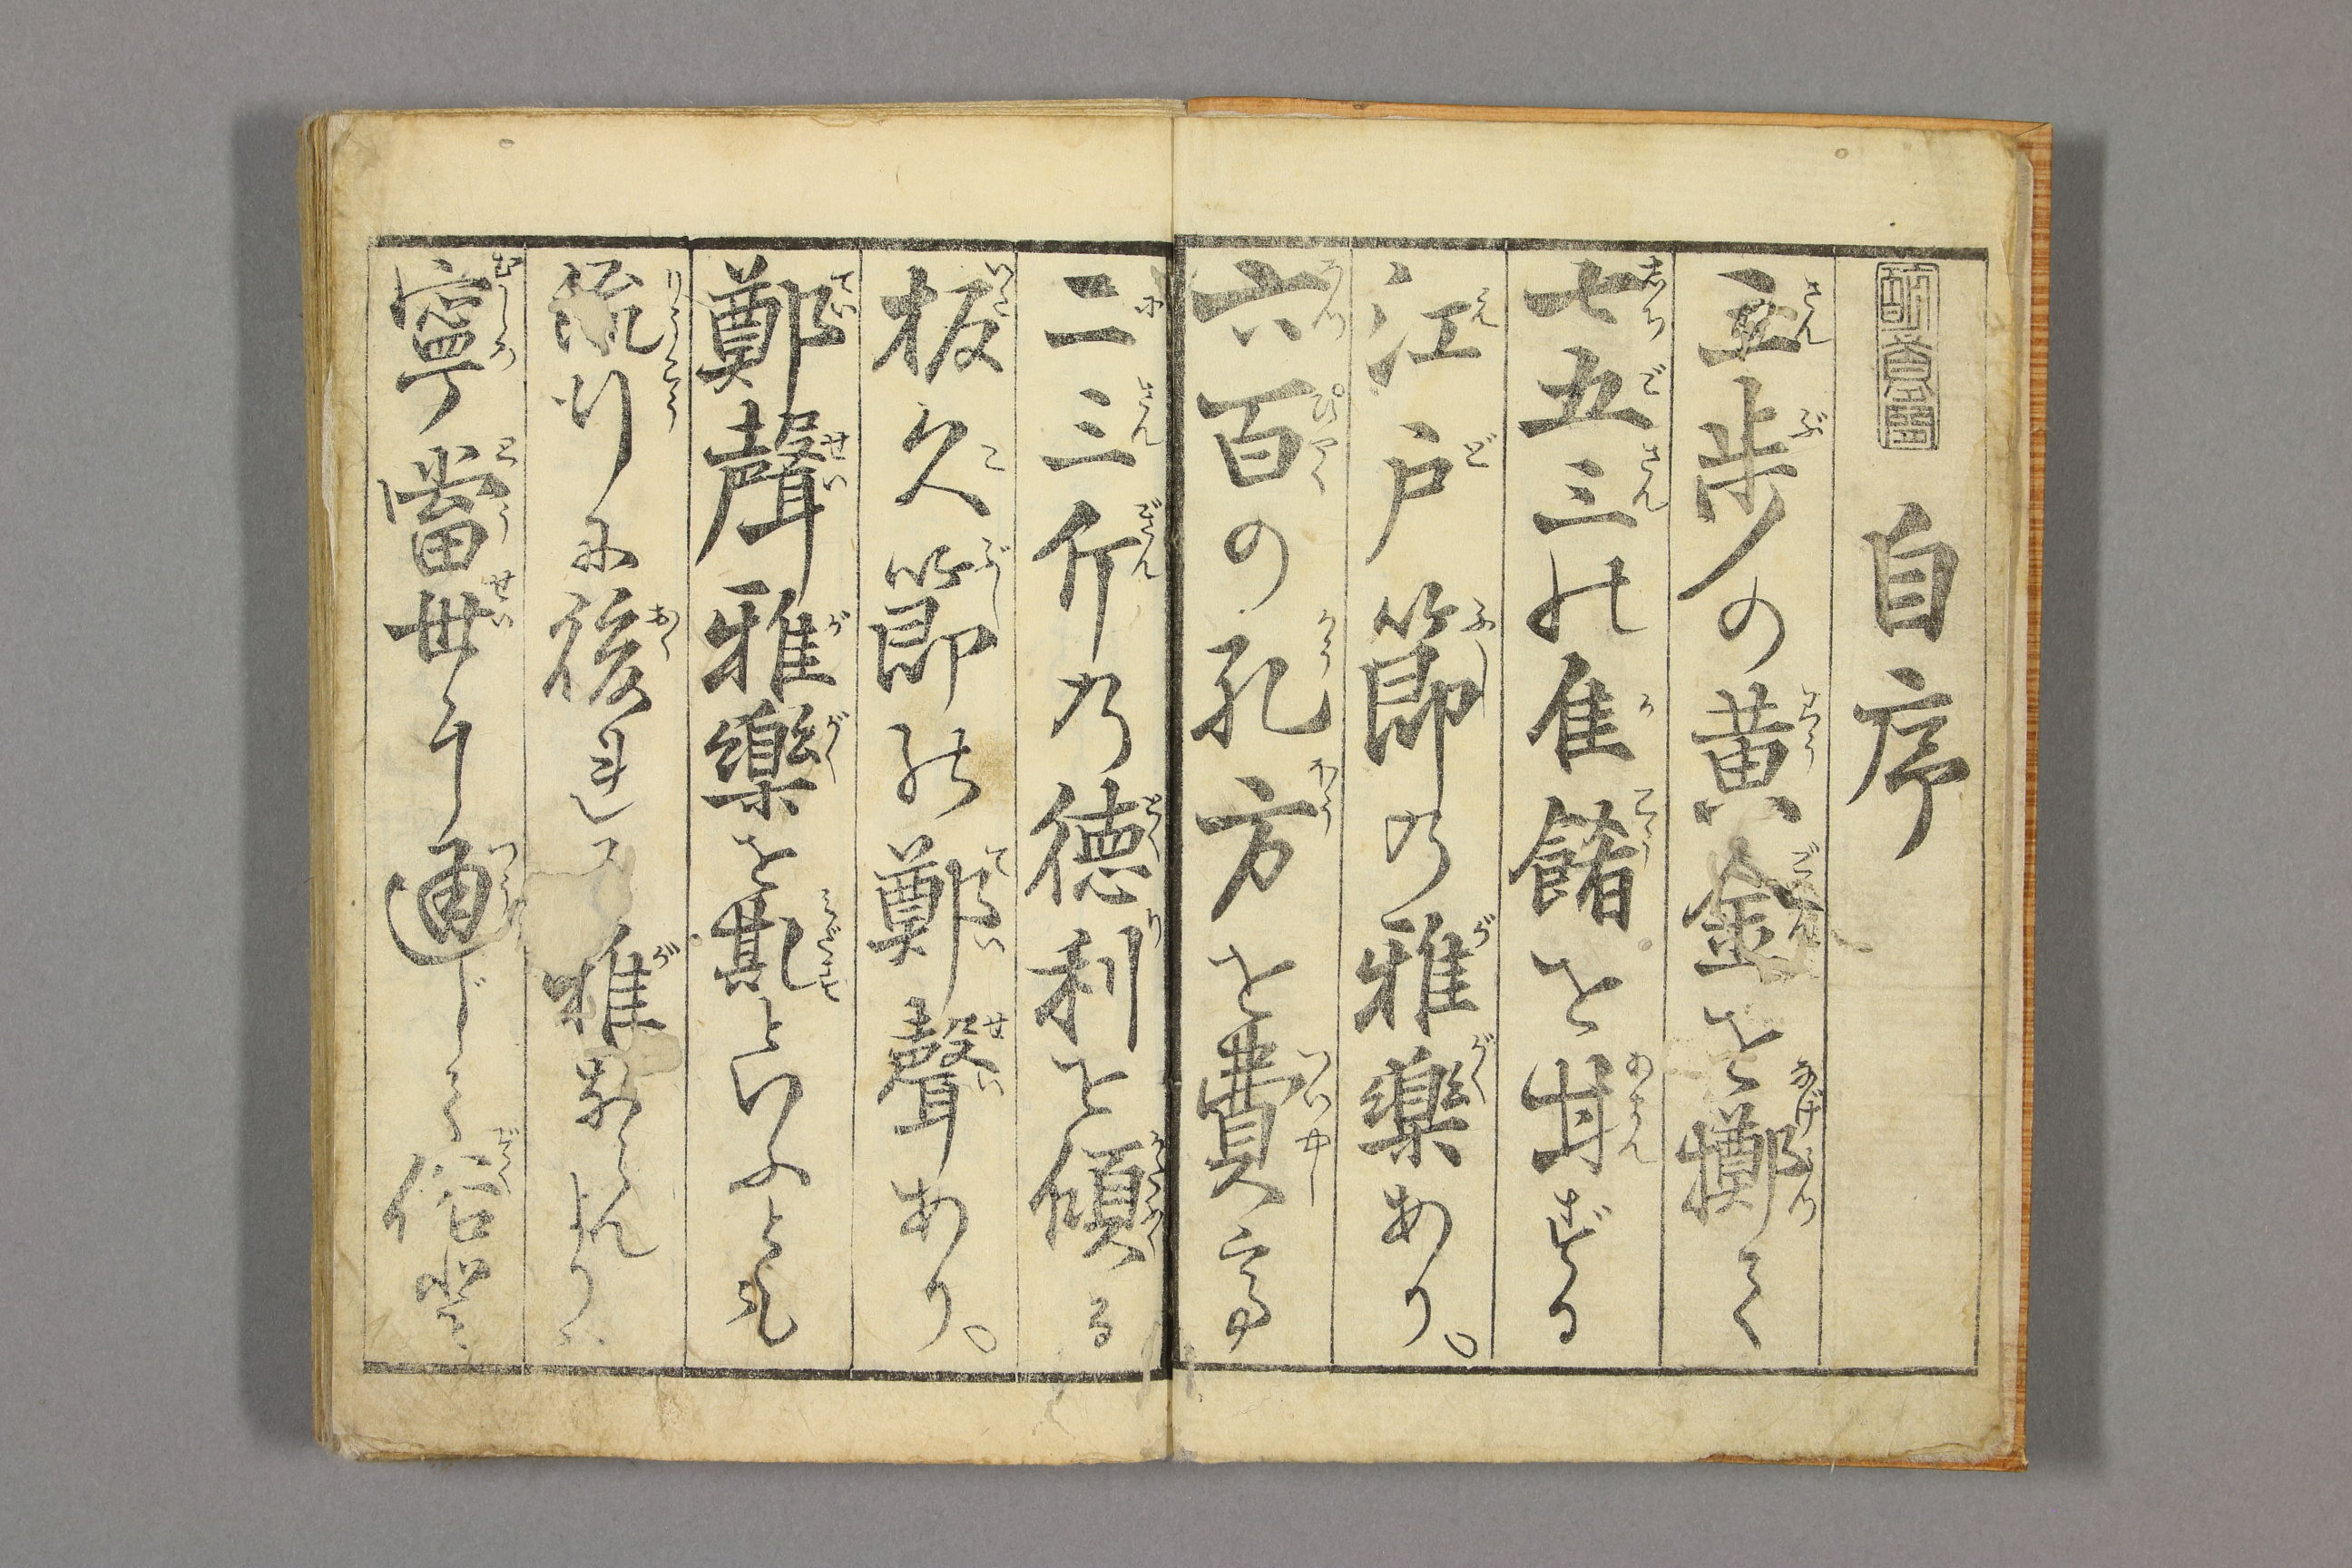 自序
三歩の黄金を擲て
七五三の佳餚を甘ずる
江戸節の雅樂あり。
六百の孔方を費て
二三斤の徳利を傾る
板久節の鄭聲あり。
鄭聲雅樂を亂といふとも
流行に後れて雅ならんより
寧當世に通じて俗